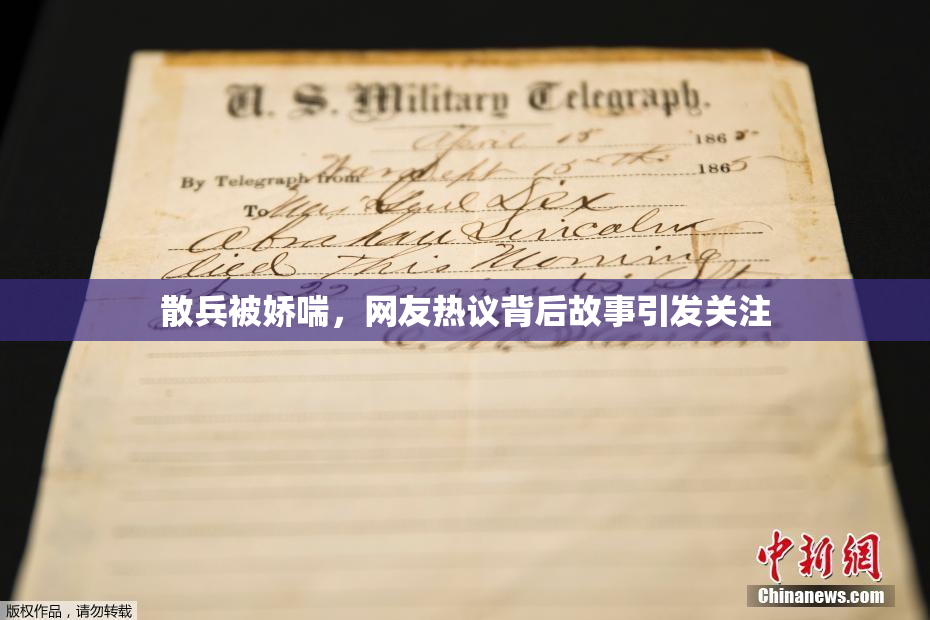 U. S. Military Telegraph.
April 15 1865
By Telegraph from War Dept 15th 1865
To Maj Genl Dix
Abraham Lincoln
died This Morning
22 minutes after
散兵被娇喘，网友热议背后故事引发关注
E. M. Stanton
中新網
Chinanews.com
版权作品，请勿转载